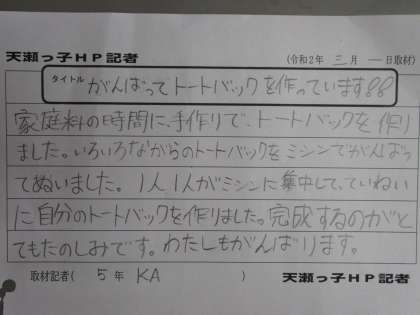 天瀬っ子HP記者
(令和2年 三月 一日取材)
タイトル がんばってトートバックを作っています!!
家庭料の時間に、手作りで、トートバックを作り
ました。いろいろながらのトートバックをミシンでがんばっ
てぬいました。1人1人がミシンに集中して、ていねい
に自分のトートバックを作りました。完成するのがと
てもたのしみです。わたしもがんばります。
取材記者( 5年 KA )
天瀬っ子HP記者